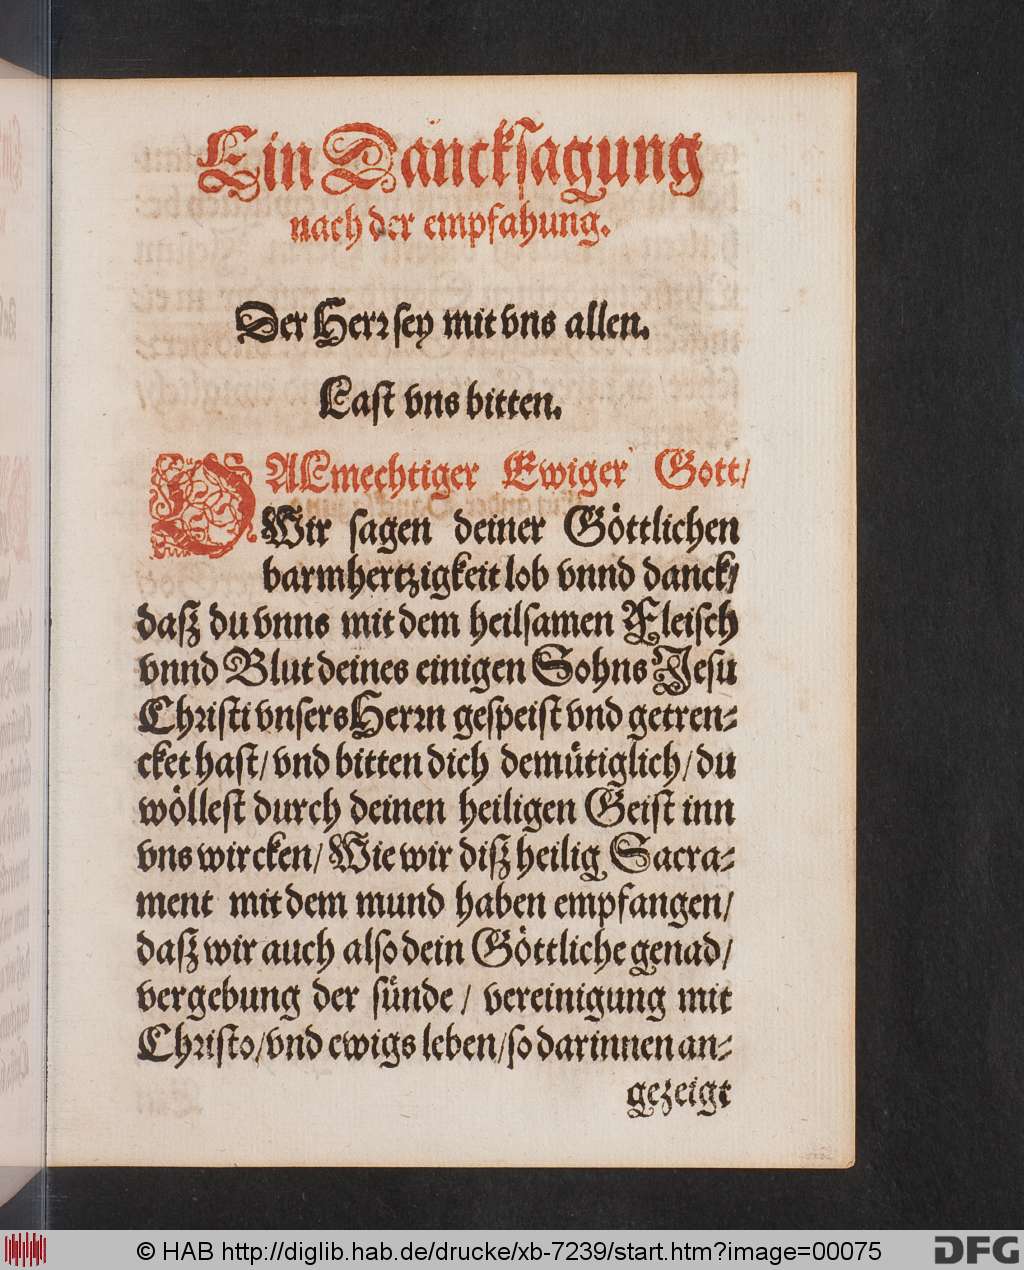 Ein Dancksagung
nach der empfahung.
Der Herr sey mit vns allen.
Last vns bitten.
O ALmechtiger Ewiger Gott/
Wir sagen deiner Göttlichen
barmhertzigkeit lob vnnd danck/
dasz du vnns mit dem heilsamen Fleisch
vnnd Blut deines einigen Sohns Jesu
Christi vnsers Herrn gespeist vnd getren-
cket hast/ vnd bitten dich demütiglich/ du
wöllest durch deinen heiligen Geist inn
vns wircken/ Wie wir disz heilig Sacra-
ment mit dem mund haben empfangen/
dasz wir auch also dein Göttliche genad/
vergebung der sünde/ vereinigung mit
Christo/ vnd ewigs leben/ so darinnen an-
gezeigt
© HAB http://diglib.hab.de/drucke/xb-7239/start.htm?image=00075
DFG